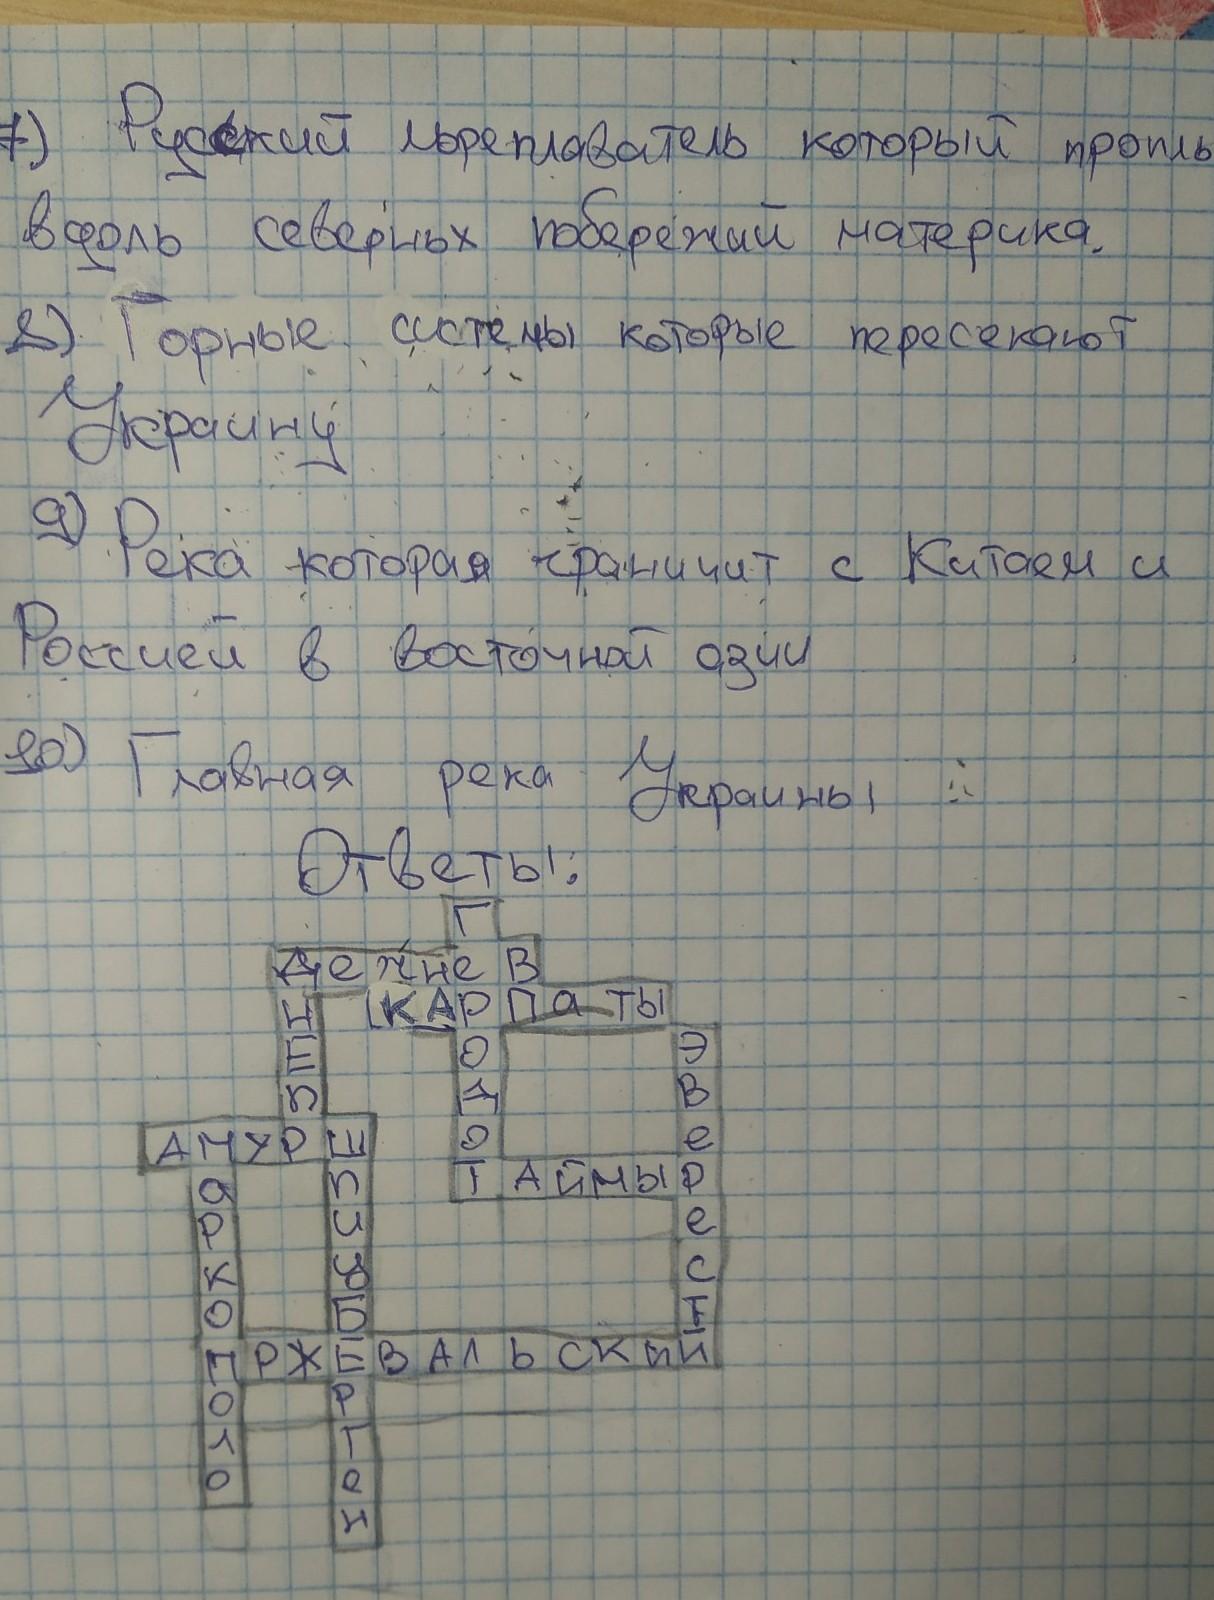 7) Русский мореплаватель который проплы
вдоль северных побережий материка.
8) Горные системы которые пересекают
Украину
9) Река которая граничит с Китаем и
Россией в восточной азии
10) Главная река Украины
Ответы:
Г
Дежнев
КАРПАТЫ
ДНЕПР
ГЕРОДОТ
ЭВЕРЕСТ
АМУР
ТАЙМЫР
МАРКОПОЛО
ШПИЦБЕРГЕН
ПРЖЕВАЛЬСКИЙ